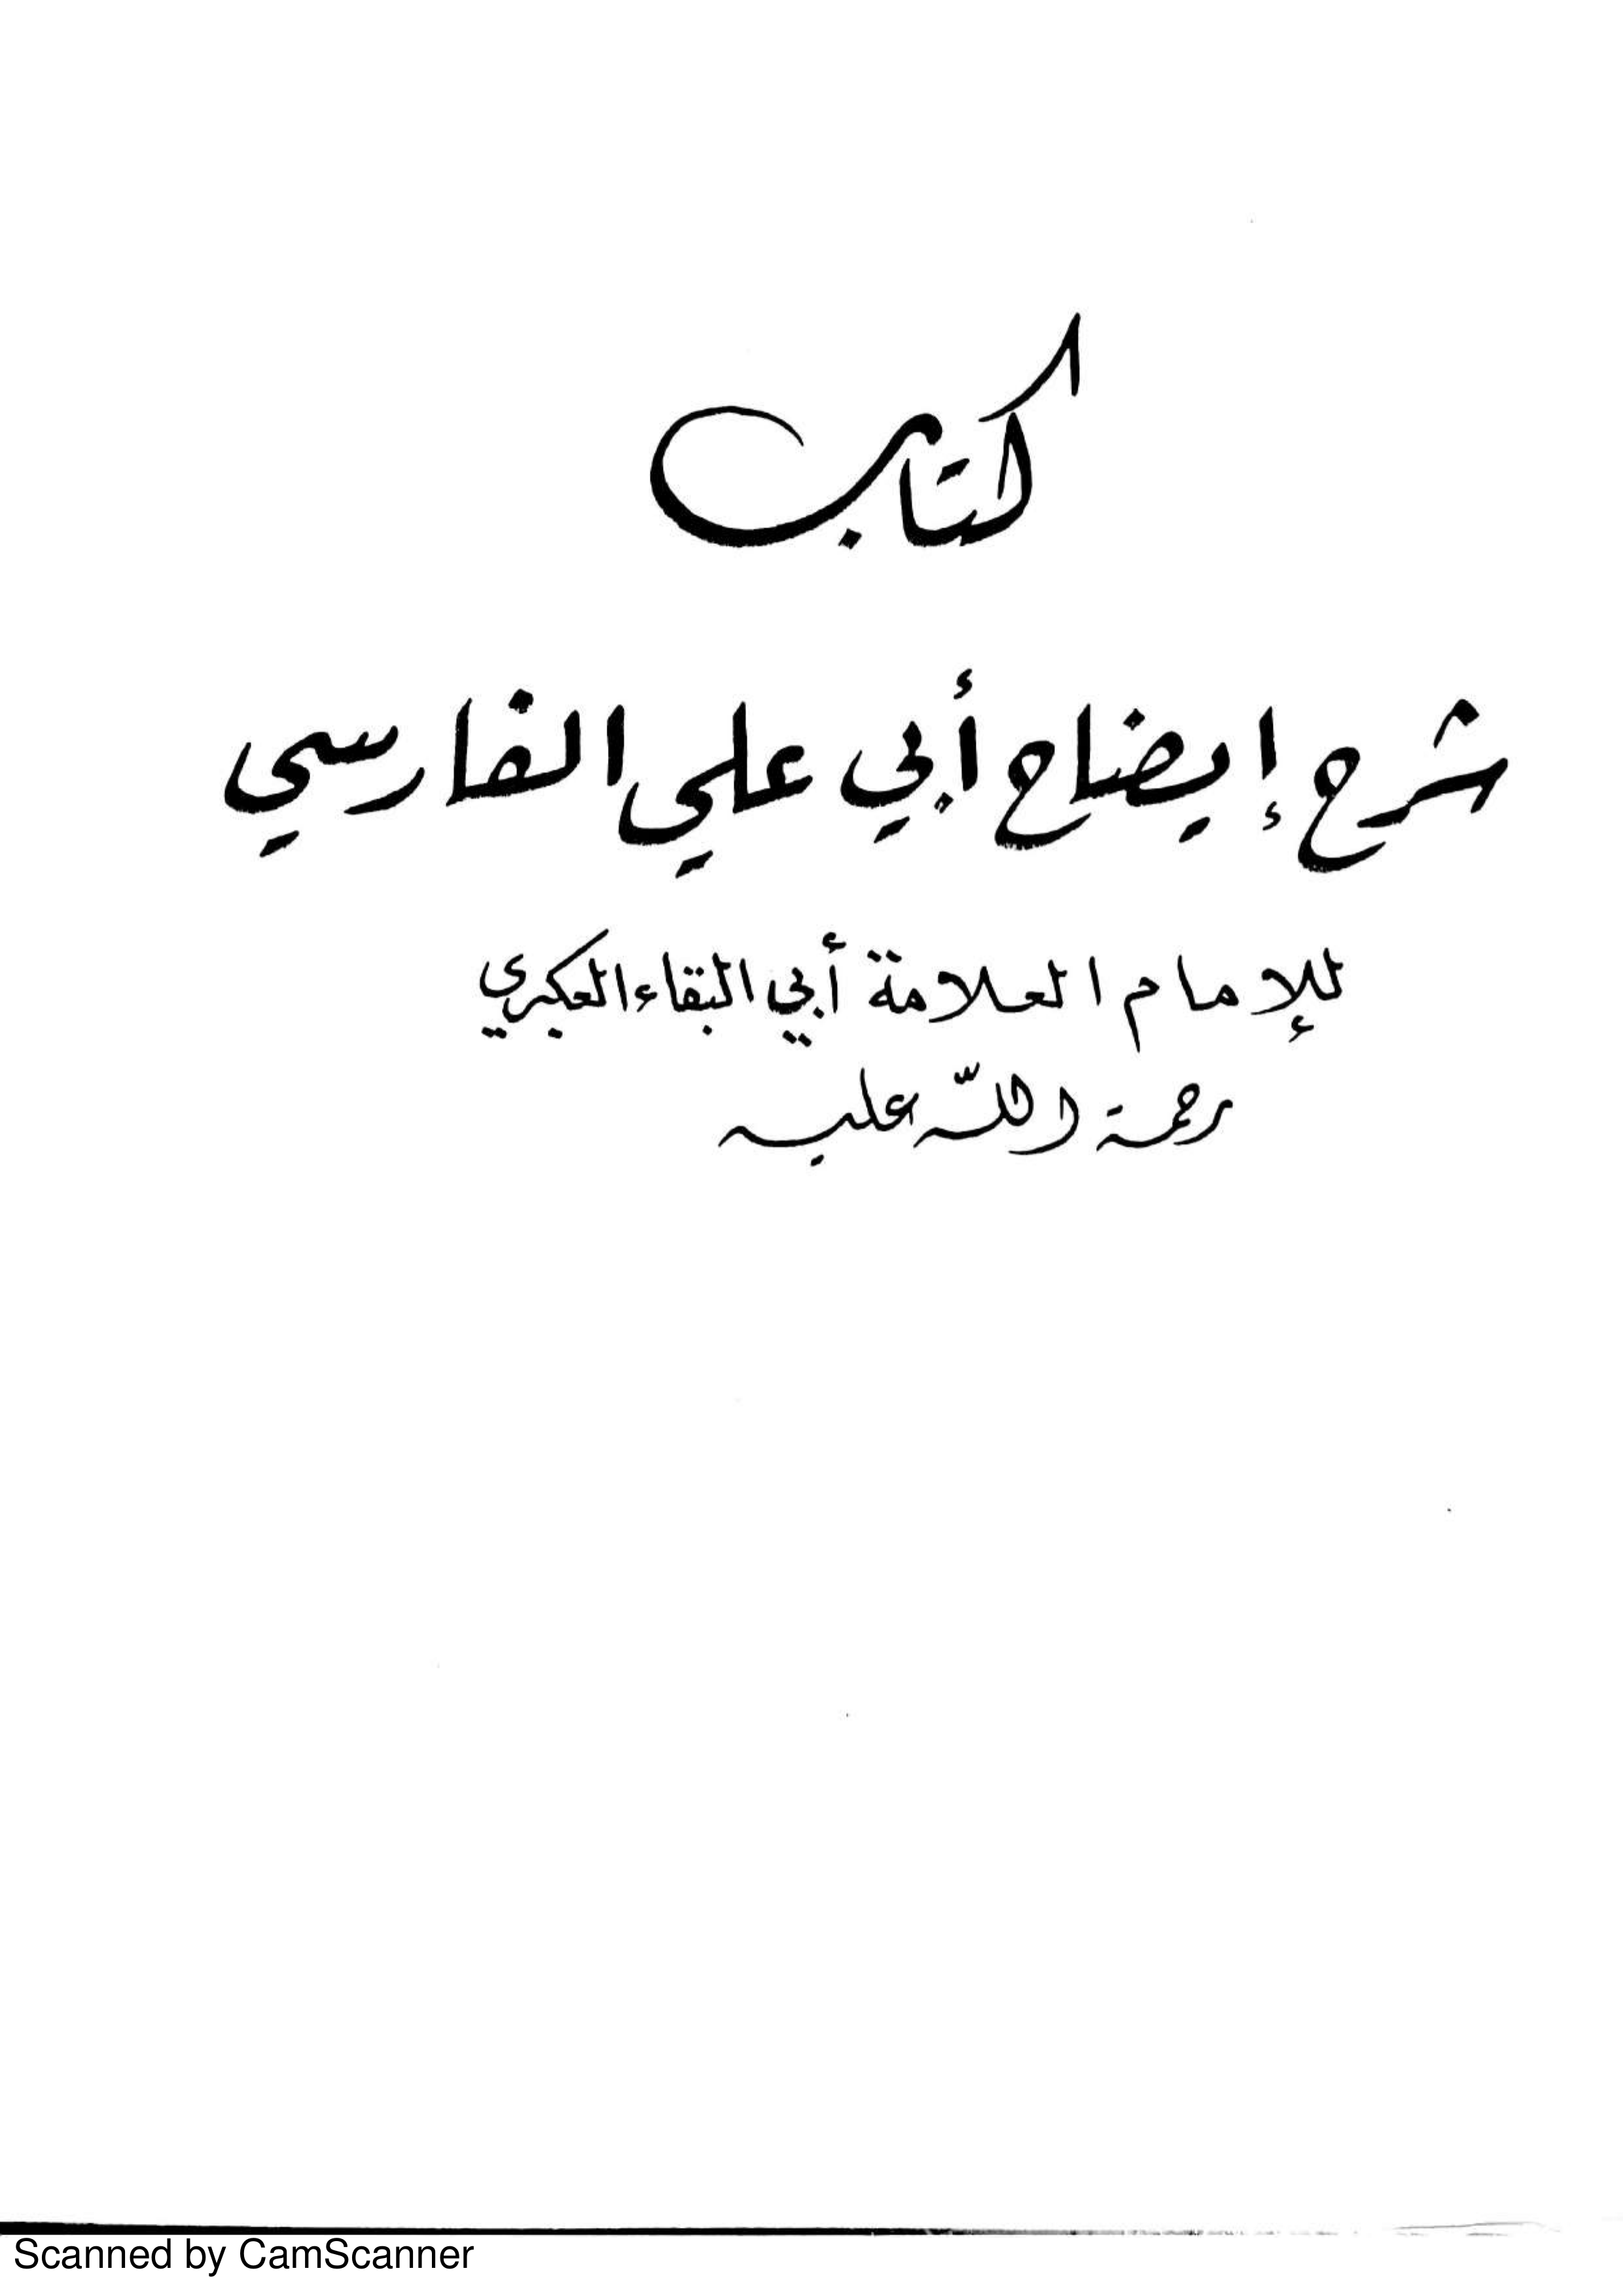 كتاب
شرح إيضاح أبي علي الفارسي
للإمام العلامة أبي البقاء العكبري
رحمة اللّه عليه
Scanned by CamScanner